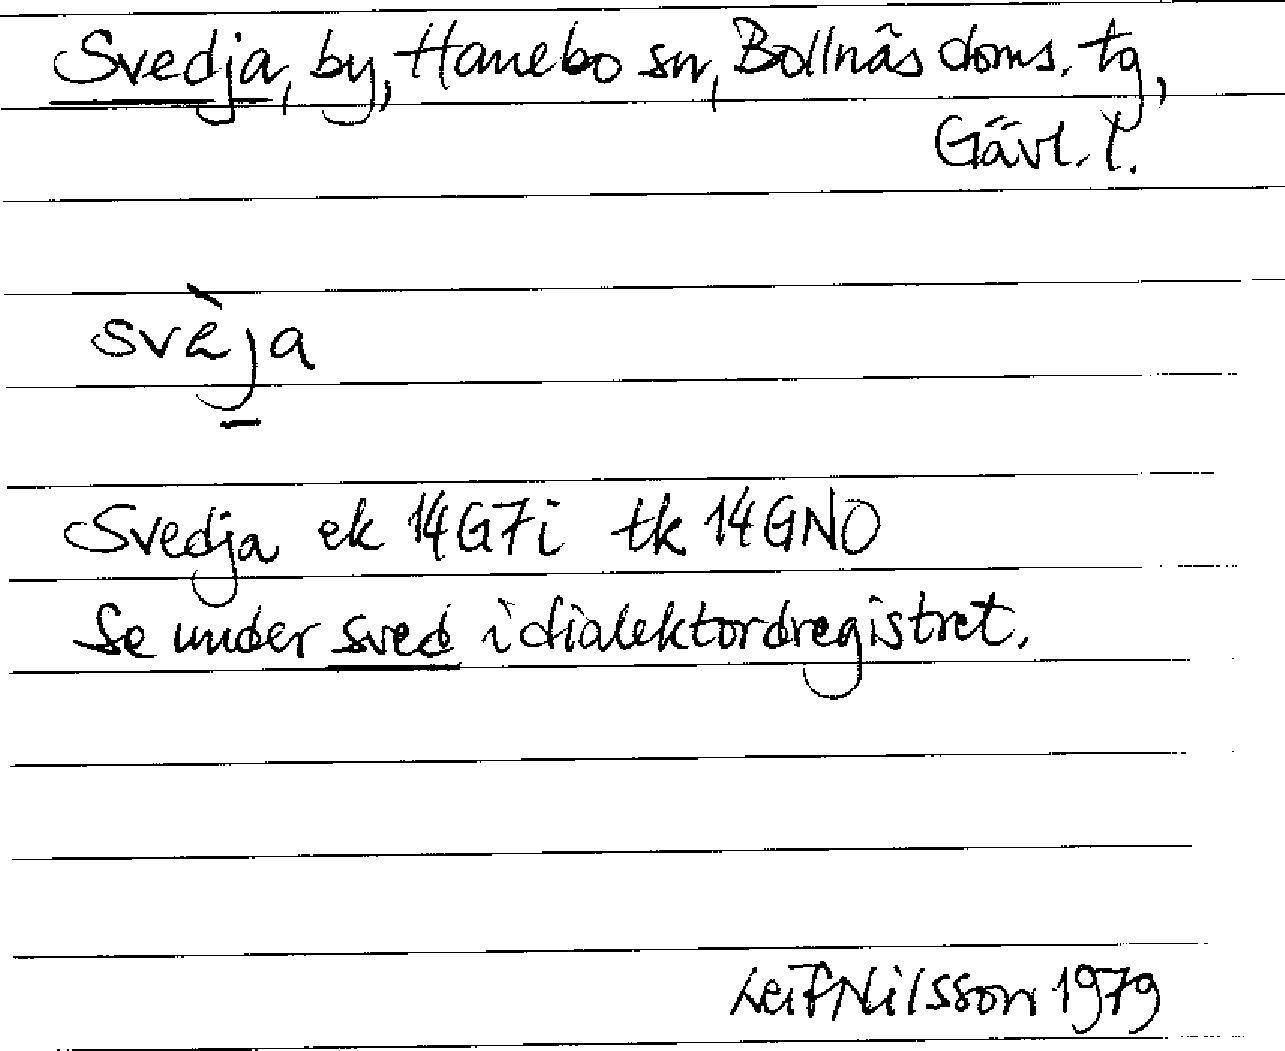 Svedja, by, Hanebo sn, Bollnäs doms. tg,
Gävl. l.
svèja
Svedja ek 14G7i tk 14GNO
Se under sved i dialektordregistret.
Leif Nilsson 1979